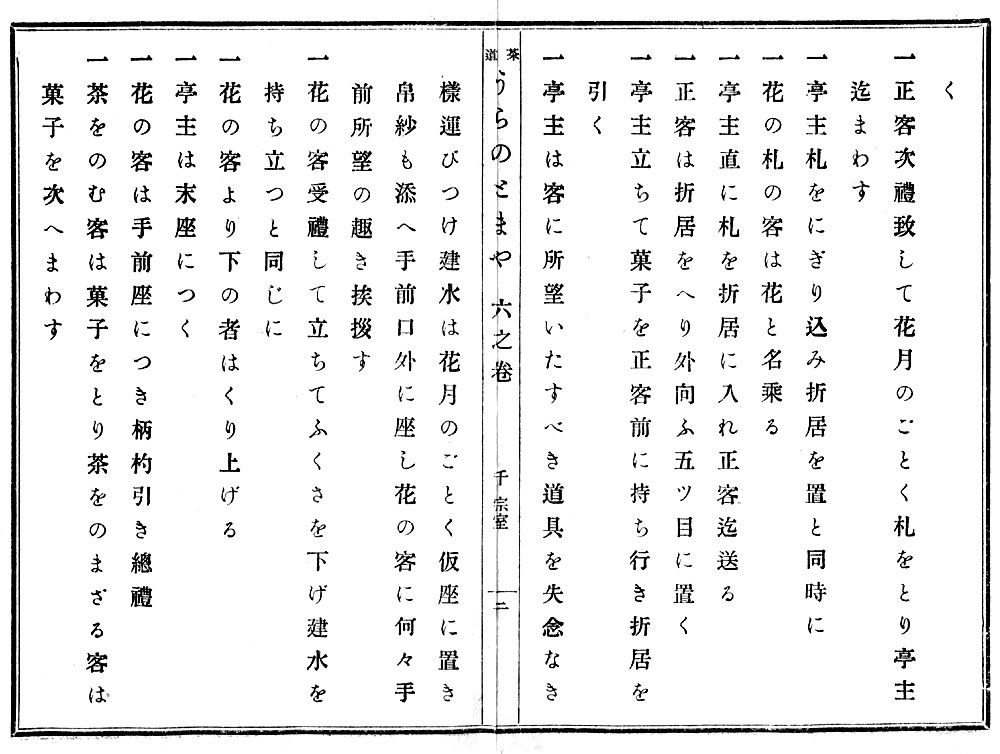 く
一正客次禮致して花月のごとく札をとり亭主
迄まわす
一亭主札をにぎり込み折居を置と同時に
一花の札の客は花と名乘る
一亭主直に札を折居に入れ正客迄送る
一正客は折居をへり外向ふ五ツ目に置く
一亭主立ちて菓子を正客前に持ち行き折居を
引く
一亭主は客に所望いたすべき道具を失念なき
茶道
うらのとまや 六之卷
千宗室
二
樣運びつけ建水は花月のごとく仮座に置き
帛紗も添へ手前口外に座し花の客に何々手
前所望の趣き挨拶す
一花の客受禮して立ちてふくさを下げ建水を
持ち立つと同じに
一花の客より下の者はくり上げる
一亭主は末座につく
一花の客は手前座につき柄杓引き總禮
一茶をのむ客は菓子をとり茶をのまざる客は
菓子を次へまわす